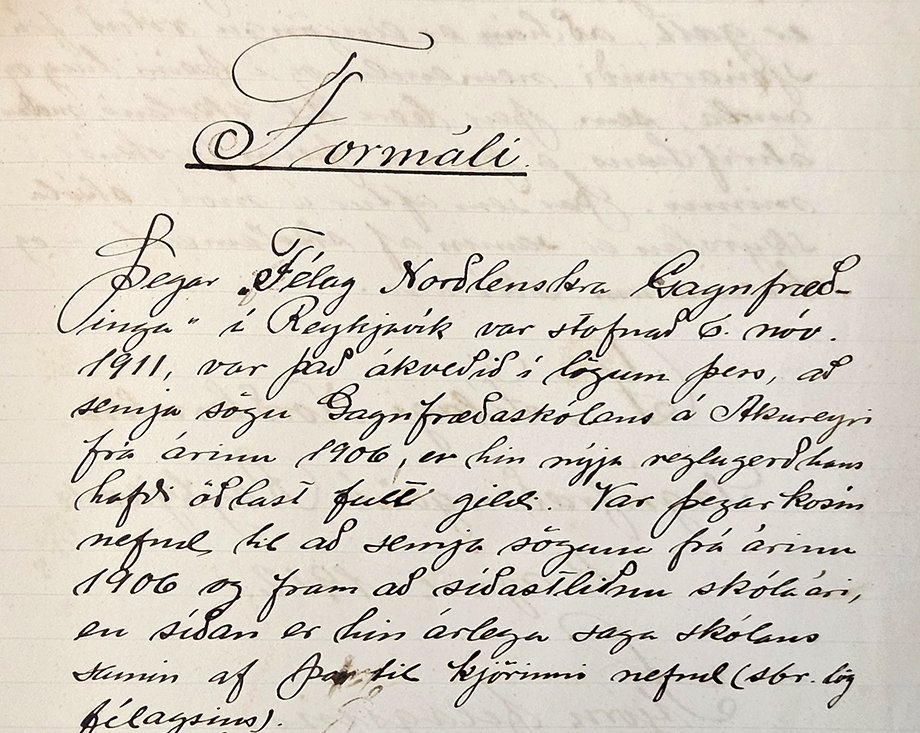 Formáli.
Þegar „Félag Norðlenskra Gagnfræð-
inga“ í Reykjavík var stofnað 6. nóv.
1911, var það ákveðið í lögum þess, að
semja sögu Gagnfræðaskólans á Akureyri
frá árinu 1906, er hin nýja reglugerð hans
hafði öðlast fullt gildi. Var þegar kosin
nefnd til að semja söguna frá árinu
1906 og fram að síðastliðnu skólaári,
en síðan er hin árlega saga skólans
samin af þar til kjörinni nefnd (sbr. lög
félagsins).